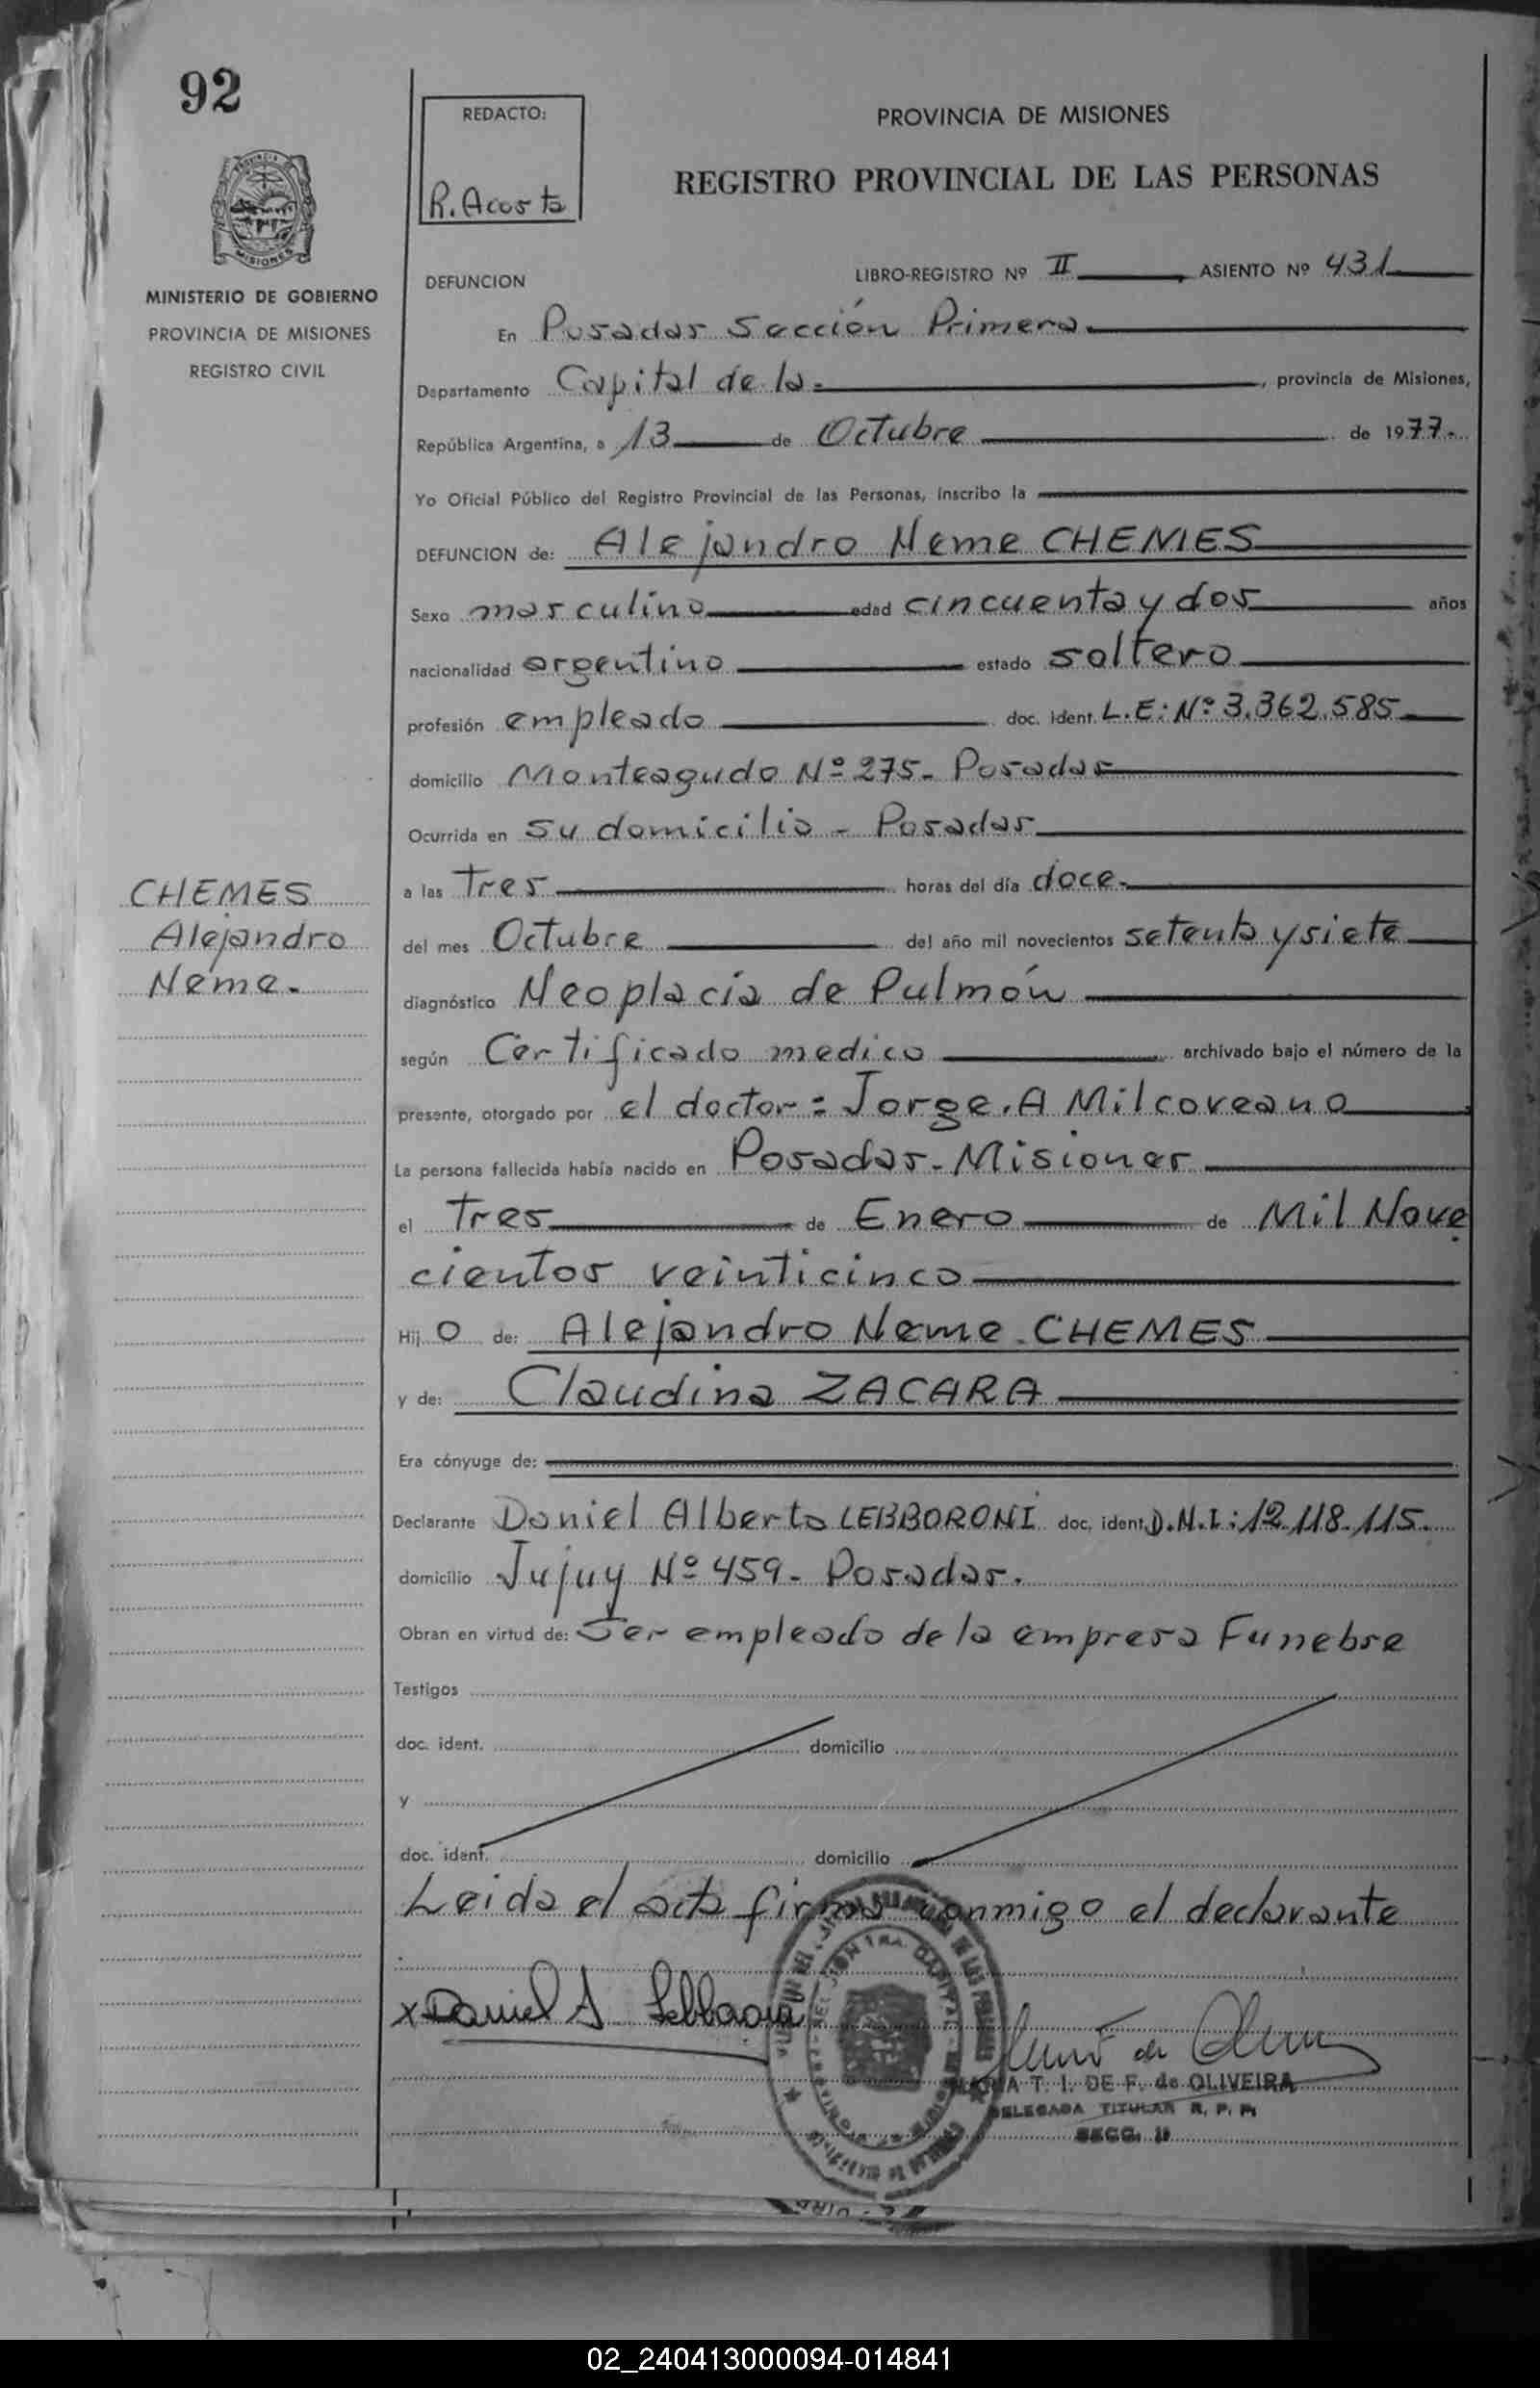 92
REDACTO:
R. Acosta
PROVINCIA DE MISIONES
REGISTRO PROVINCIAL DE LAS PERSONAS
PROVINCIA
MISIONES
MINISTERIO DE GOBIERNO
PROVINCIA DE MISIONES
REGISTRO CIVIL
DEFUNCION LIBRO-REGISTRO Nº II, ASIENTO Nº 431
En Posadas Sección Primera.
Departamento Capital de la , provincia de Misiones,
República Argentina, a 13 de Octubre de 1977.
Yo Oficial Público del Registro Provincial de las Personas, inscribo la
DEFUNCION de: Alejandro Neme CHEMES
Sexo masculino edad cincuenta y dos años
nacionalidad argentino estado soltero
profesión empleado doc. ident. L.E: Nº 3.362.585
domicilio Monteagudo Nº 275- Posadas
Ocurrida en su domicilio - Posadas
a las Tres horas del día doce.
CHEMES
Alejandro
Neme.
del mes Octubre del año mil novecientos setenta y siete
diagnóstico Neoplacia de Pulmón
según Certificado medico archivado bajo el número de la
presente, otorgado por el doctor: Jorge. A Milcoveano
La persona fallecida había nacido en Posadas- Misiones
el Tres de Enero de Mil Nove
cientos veinticinco
Hij O de: Alejandro Neme CHEMES
y de: Claudina ZACARA
Era cónyuge de:
Declarante Daniel Alberto LEBBORONI doc. ident. D.N.I: 12.118.115.
domicilio Jujuy Nº 459- Posadas.
Obran en virtud de: Ser empleado de la empresa Funebre
Testigos
doc. ident. domicilio
y
doc. ident. domicilio
Leida el acta firma conmigo el declarante
x Daniel A
T. I. DE F. de OLIVEIRA
DELEGADA TITULAR R. P. P.
SECC. 1ª
02_240413000094-014841